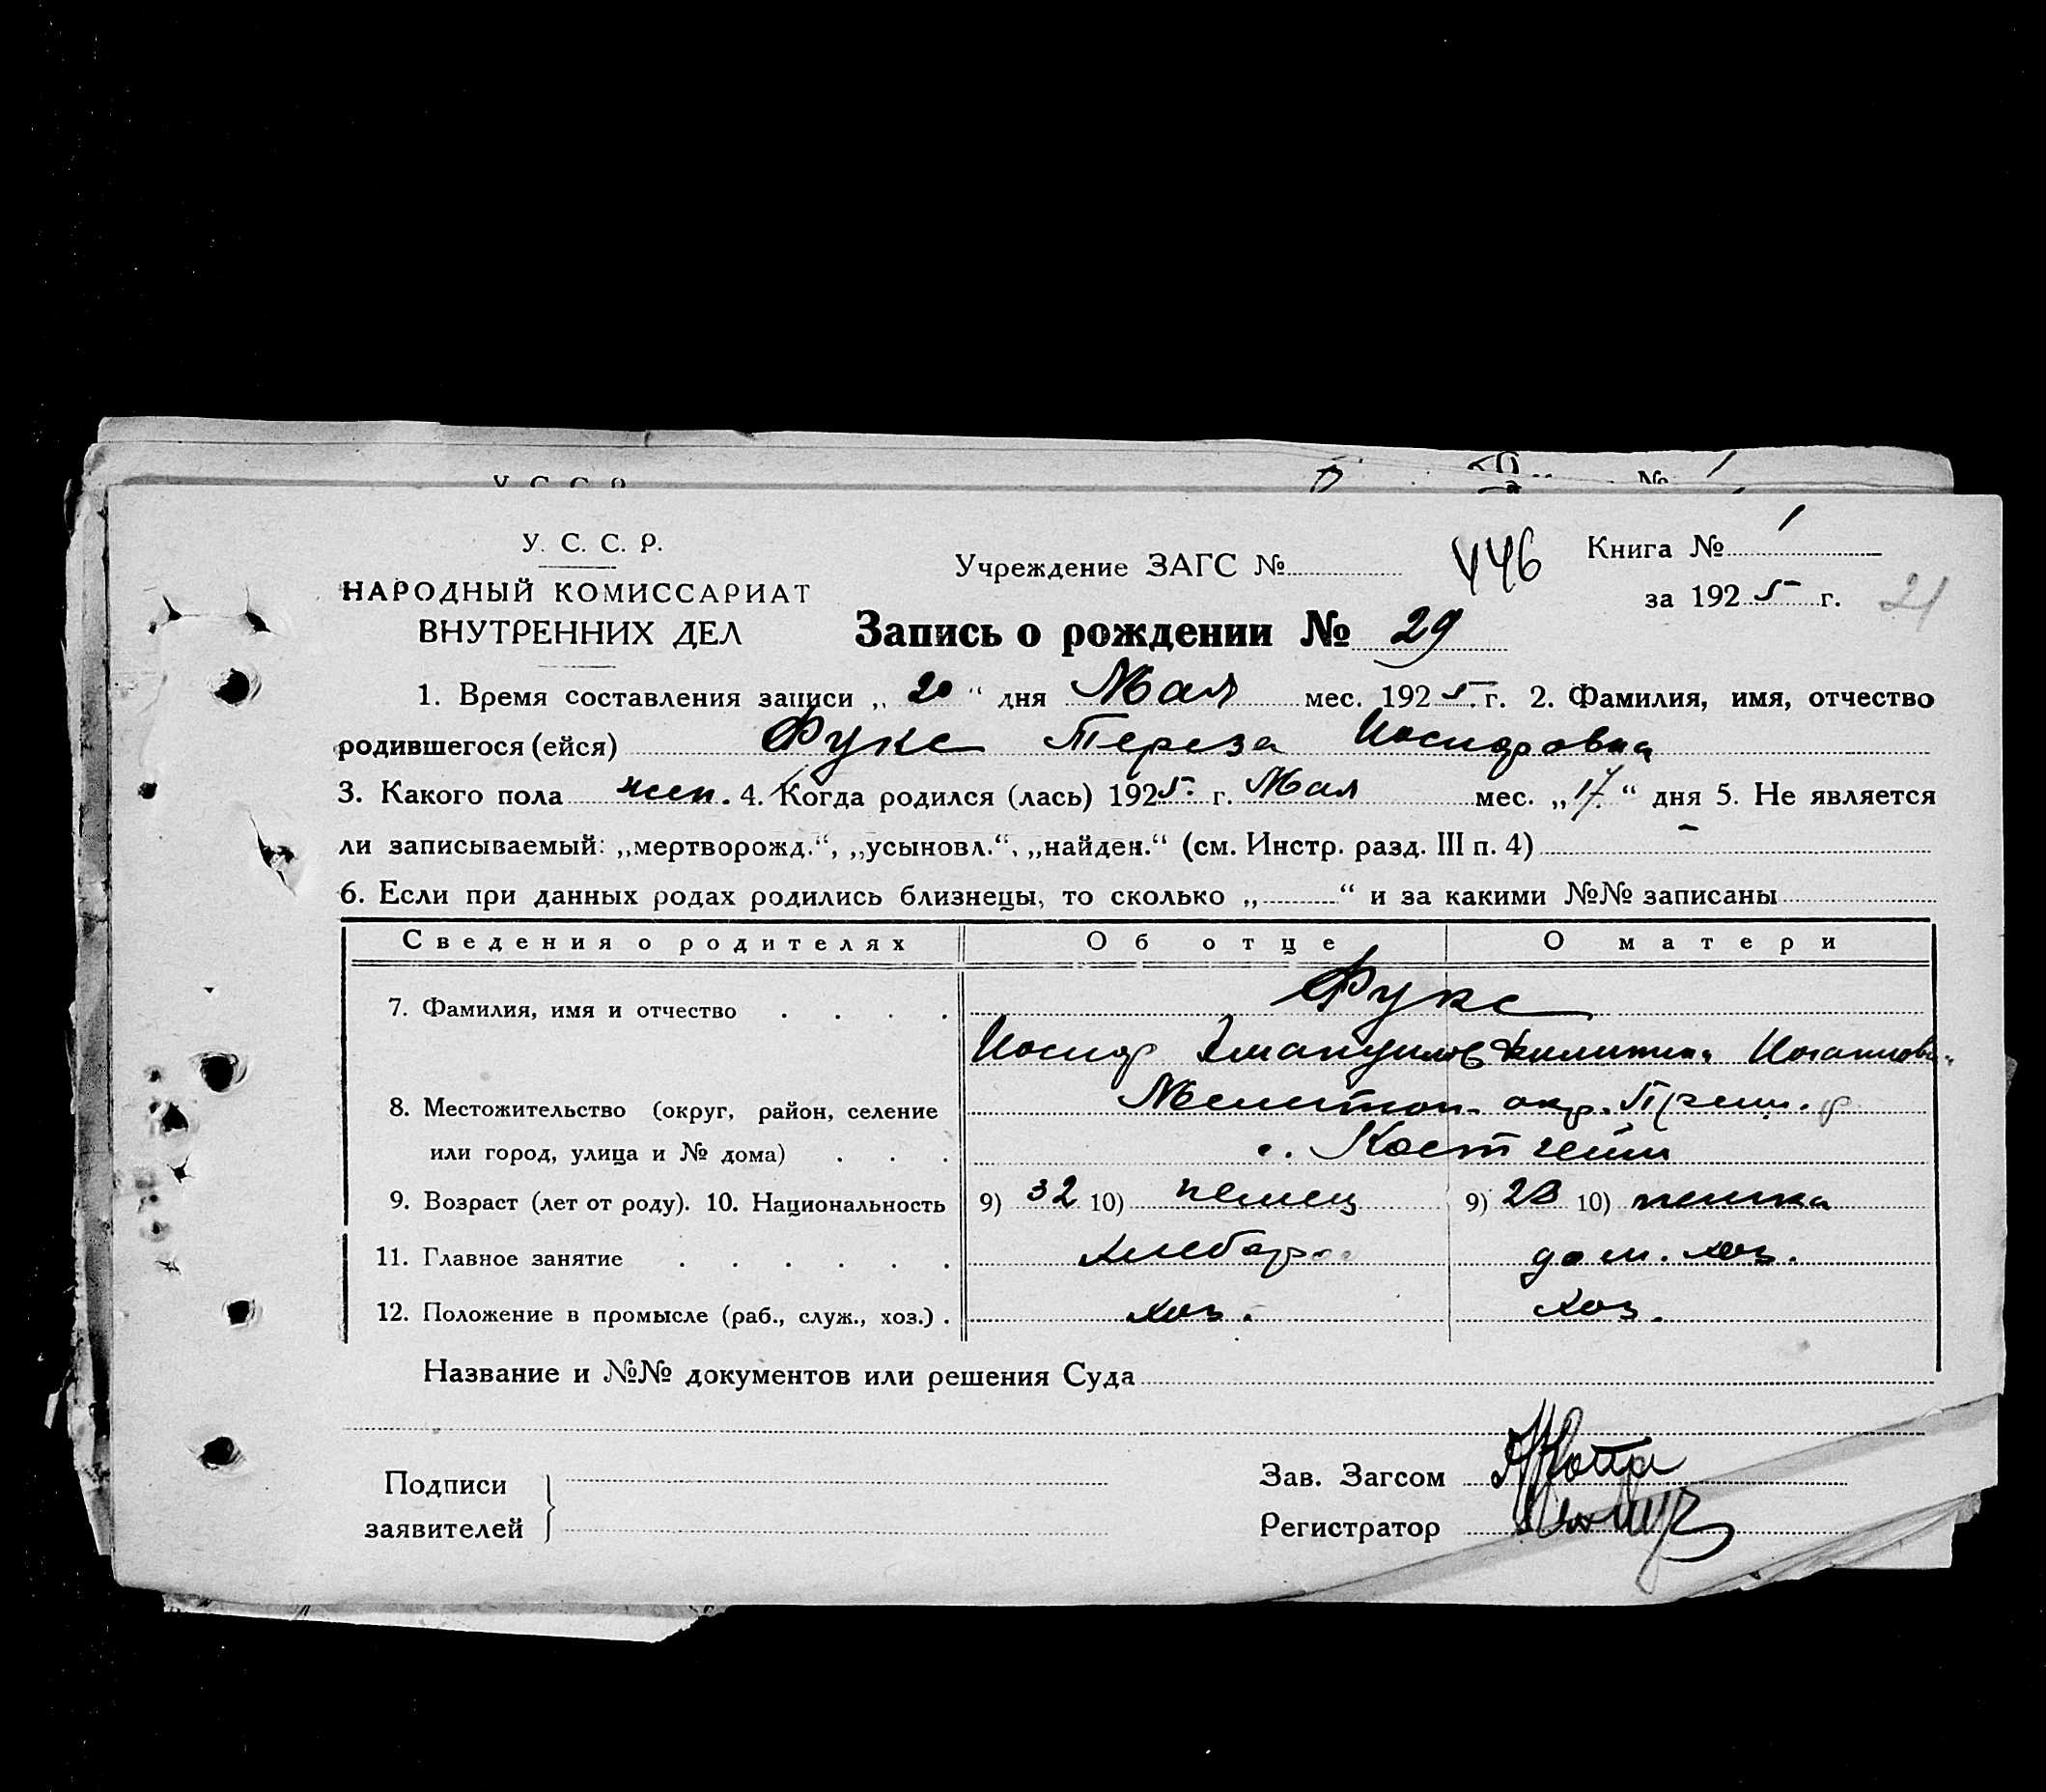 У. С. С. Р.
НАРОДНЫЙ КОМИССАРИАТ
ВНУТРЕННИХ ДЕЛ
Учреждение ЗАГС № 446
Книга № 1
за 1925 г. 21
Запись о рождении № 29
1. Время составления записи „20“ дня Мая мес. 1925 г. 2. Фамилия, имя, отчество
родившегося (ейся) Фукс Тереза Иосифовна
3. Какого пола жен. 4. Когда родился (лась) 1925 г. Мая мес. „17“ дня 5. Не является
ли записываемый: „мертворожд.“, „усыновл.“, „найден.“ (см. Инстр. разд. III п. 4) –
6. Если при данных родах родились близнецы, то сколько „ “ и за какими №№ записаны
Сведения о родителях Об отце О матери
7. Фамилия, имя и отчество Фукс
Иосиф
8. Местожительство (округ, район, селение Мелитоп. окр. Приш. р
или город, улица и № дома) с. Костгейм
9. Возраст (лет от роду). 10. Национальность 9) 32 10) немец 9) 28 10) немка
11. Главное занятие хлебороб дом. хоз.
12. Положение в промысле (раб., служ., хоз.) хоз. хоз.
Название и №№ документов или решения Суда
Подписи
заявителей
Зав. Загсом
Регистратор